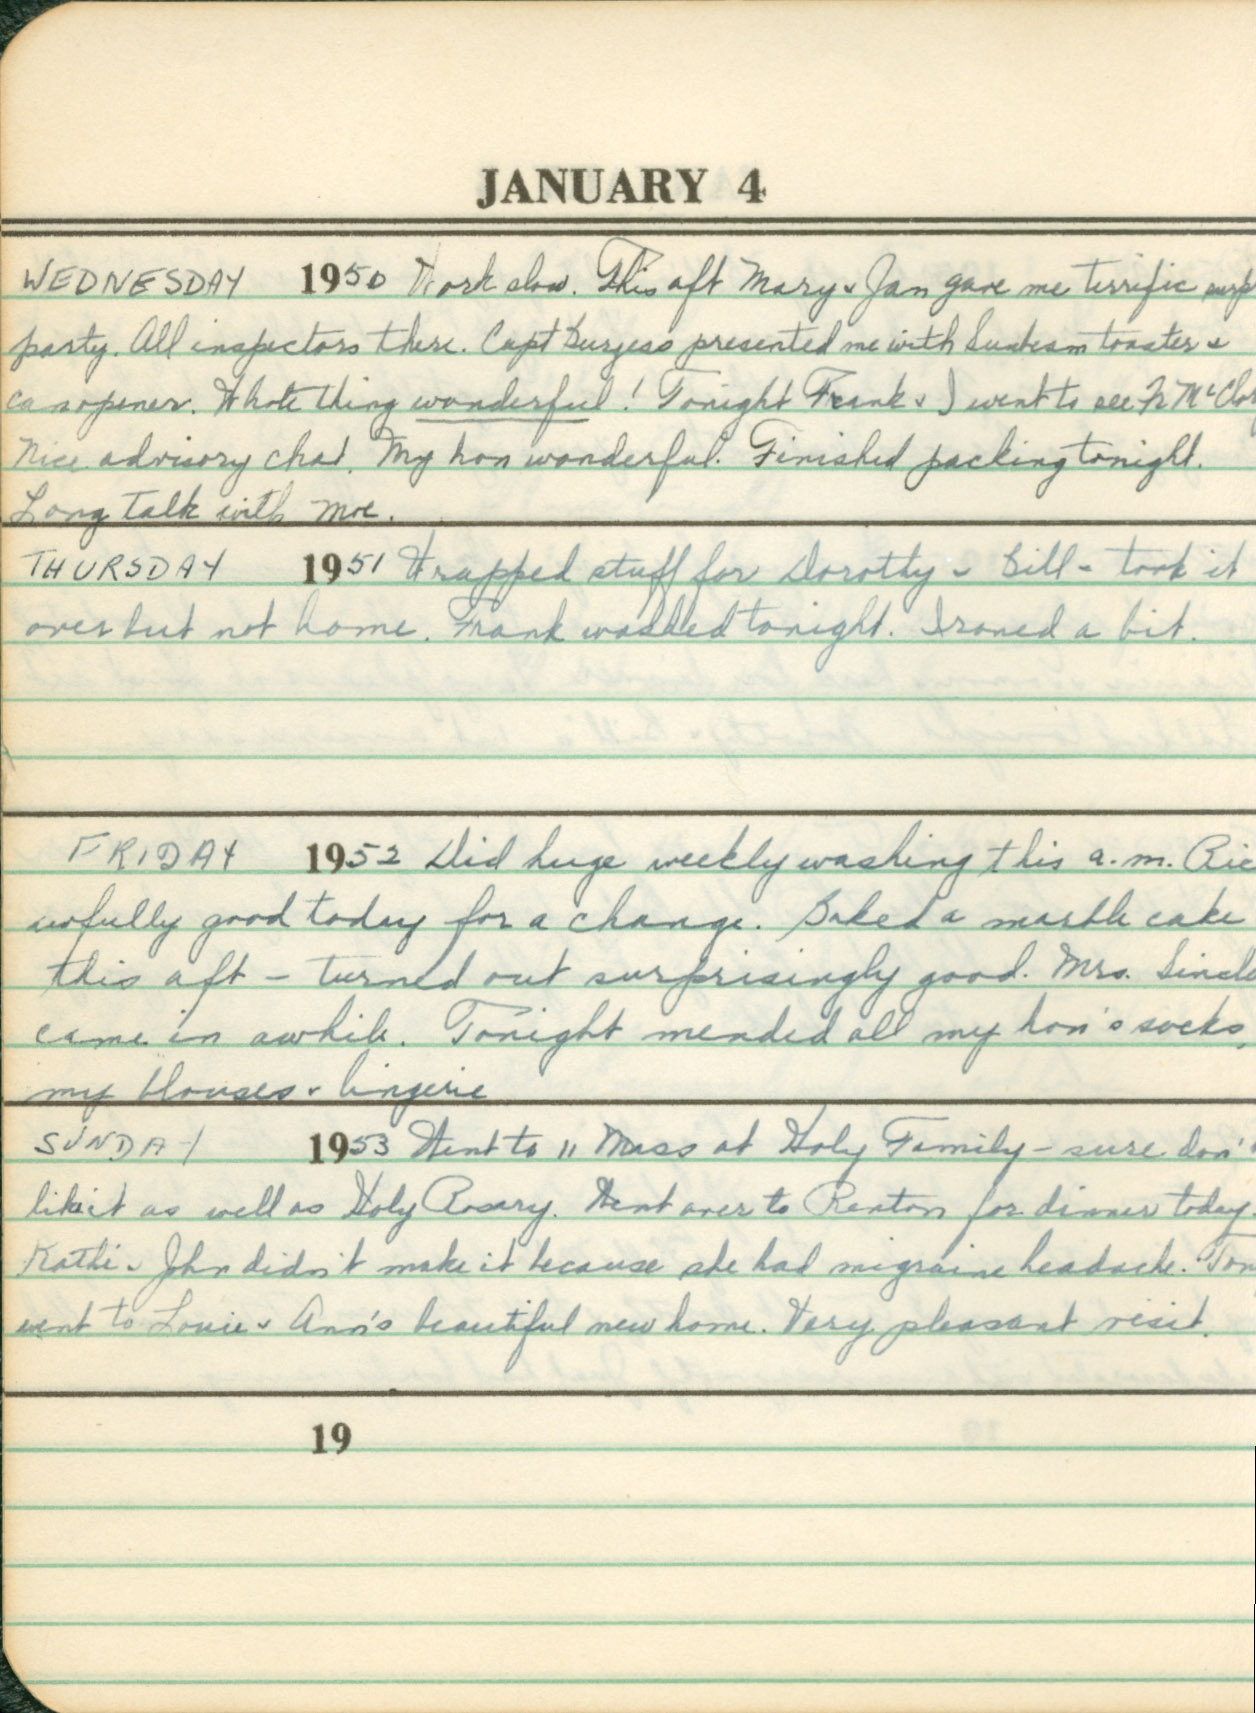 JANUARY 4
WEDNESDAY 1950 Work slow. This aft Mary & Jan gave me terrific surp
party. All inspectors there. Capt Burgess presented me with Sunbeam toaster &
canopener. Whole thing wonderful! Tonight Frank & I went to see Fr McClos
Nice advisory chat. My hon wonderful. Finished packing tonight.
Long talk with Moe.
THURSDAY 1951 Wrapped stuff for Dorothy & Bill - took it
over but not home. Frank washed tonight. Ironed a bit.
FRIDAY 1952 Did huge weekly washing this a.m. Ric
awfully good today for a change. Baked a marble cake
this aft - turned out surprisingly good. Mrs. Sincla
came in awhile. Tonight mended all my hon's socks,
my blouses & lingerie
SUNDAY 1953 Went to 11 Mass at Holy Family - sure don't
like it as well as Holy Rosary. Went over to Renton for dinner today.
Kathi & John didn't make it because she had migraine headache. Ton
went to Louie & Ann's beautiful new home. Very pleasant visit.
19